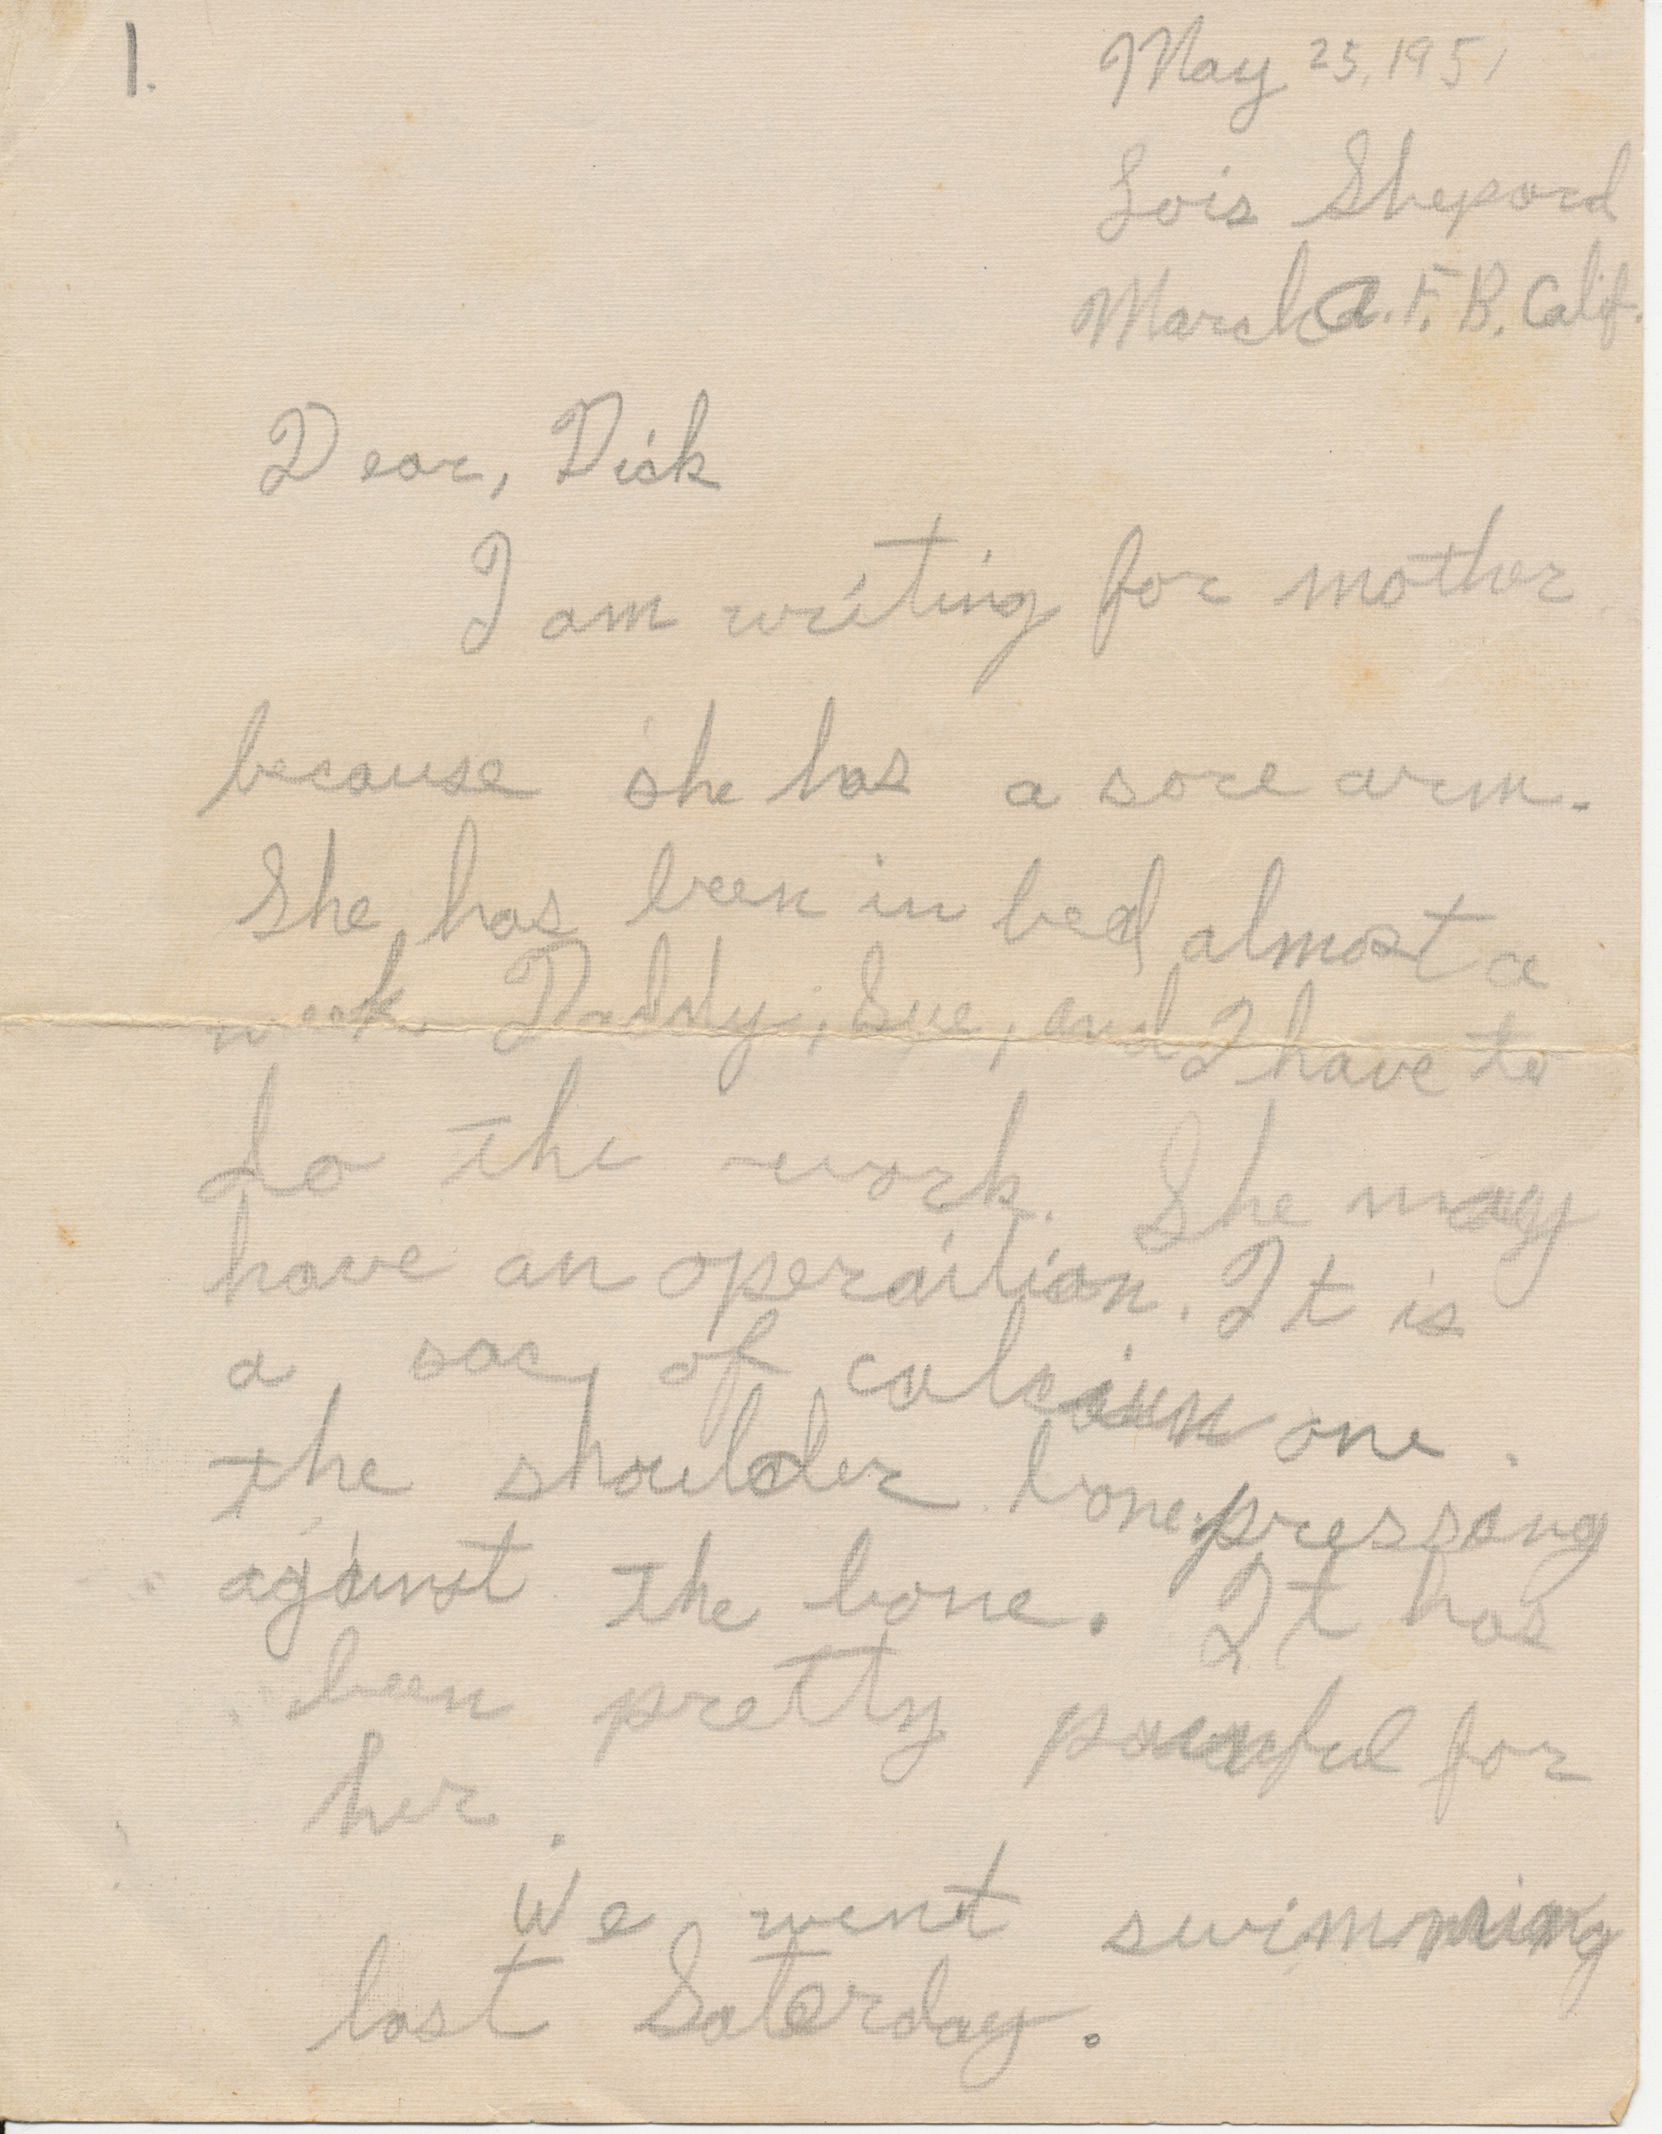 1.
May 25, 1951
Lois Shepard
March A.F.B. Calif.
Dear, Dick
I am writing for mother
because she has a sore arm.
She has been in bed almost a
week. Daddy, Sue, and I have to
do the work. She may
have an operaition. It is
a sac of calcium one.
the shoulder bone pressing
against the bone. It has
been pretty painful for
her.
We went swimming
last Saterday.